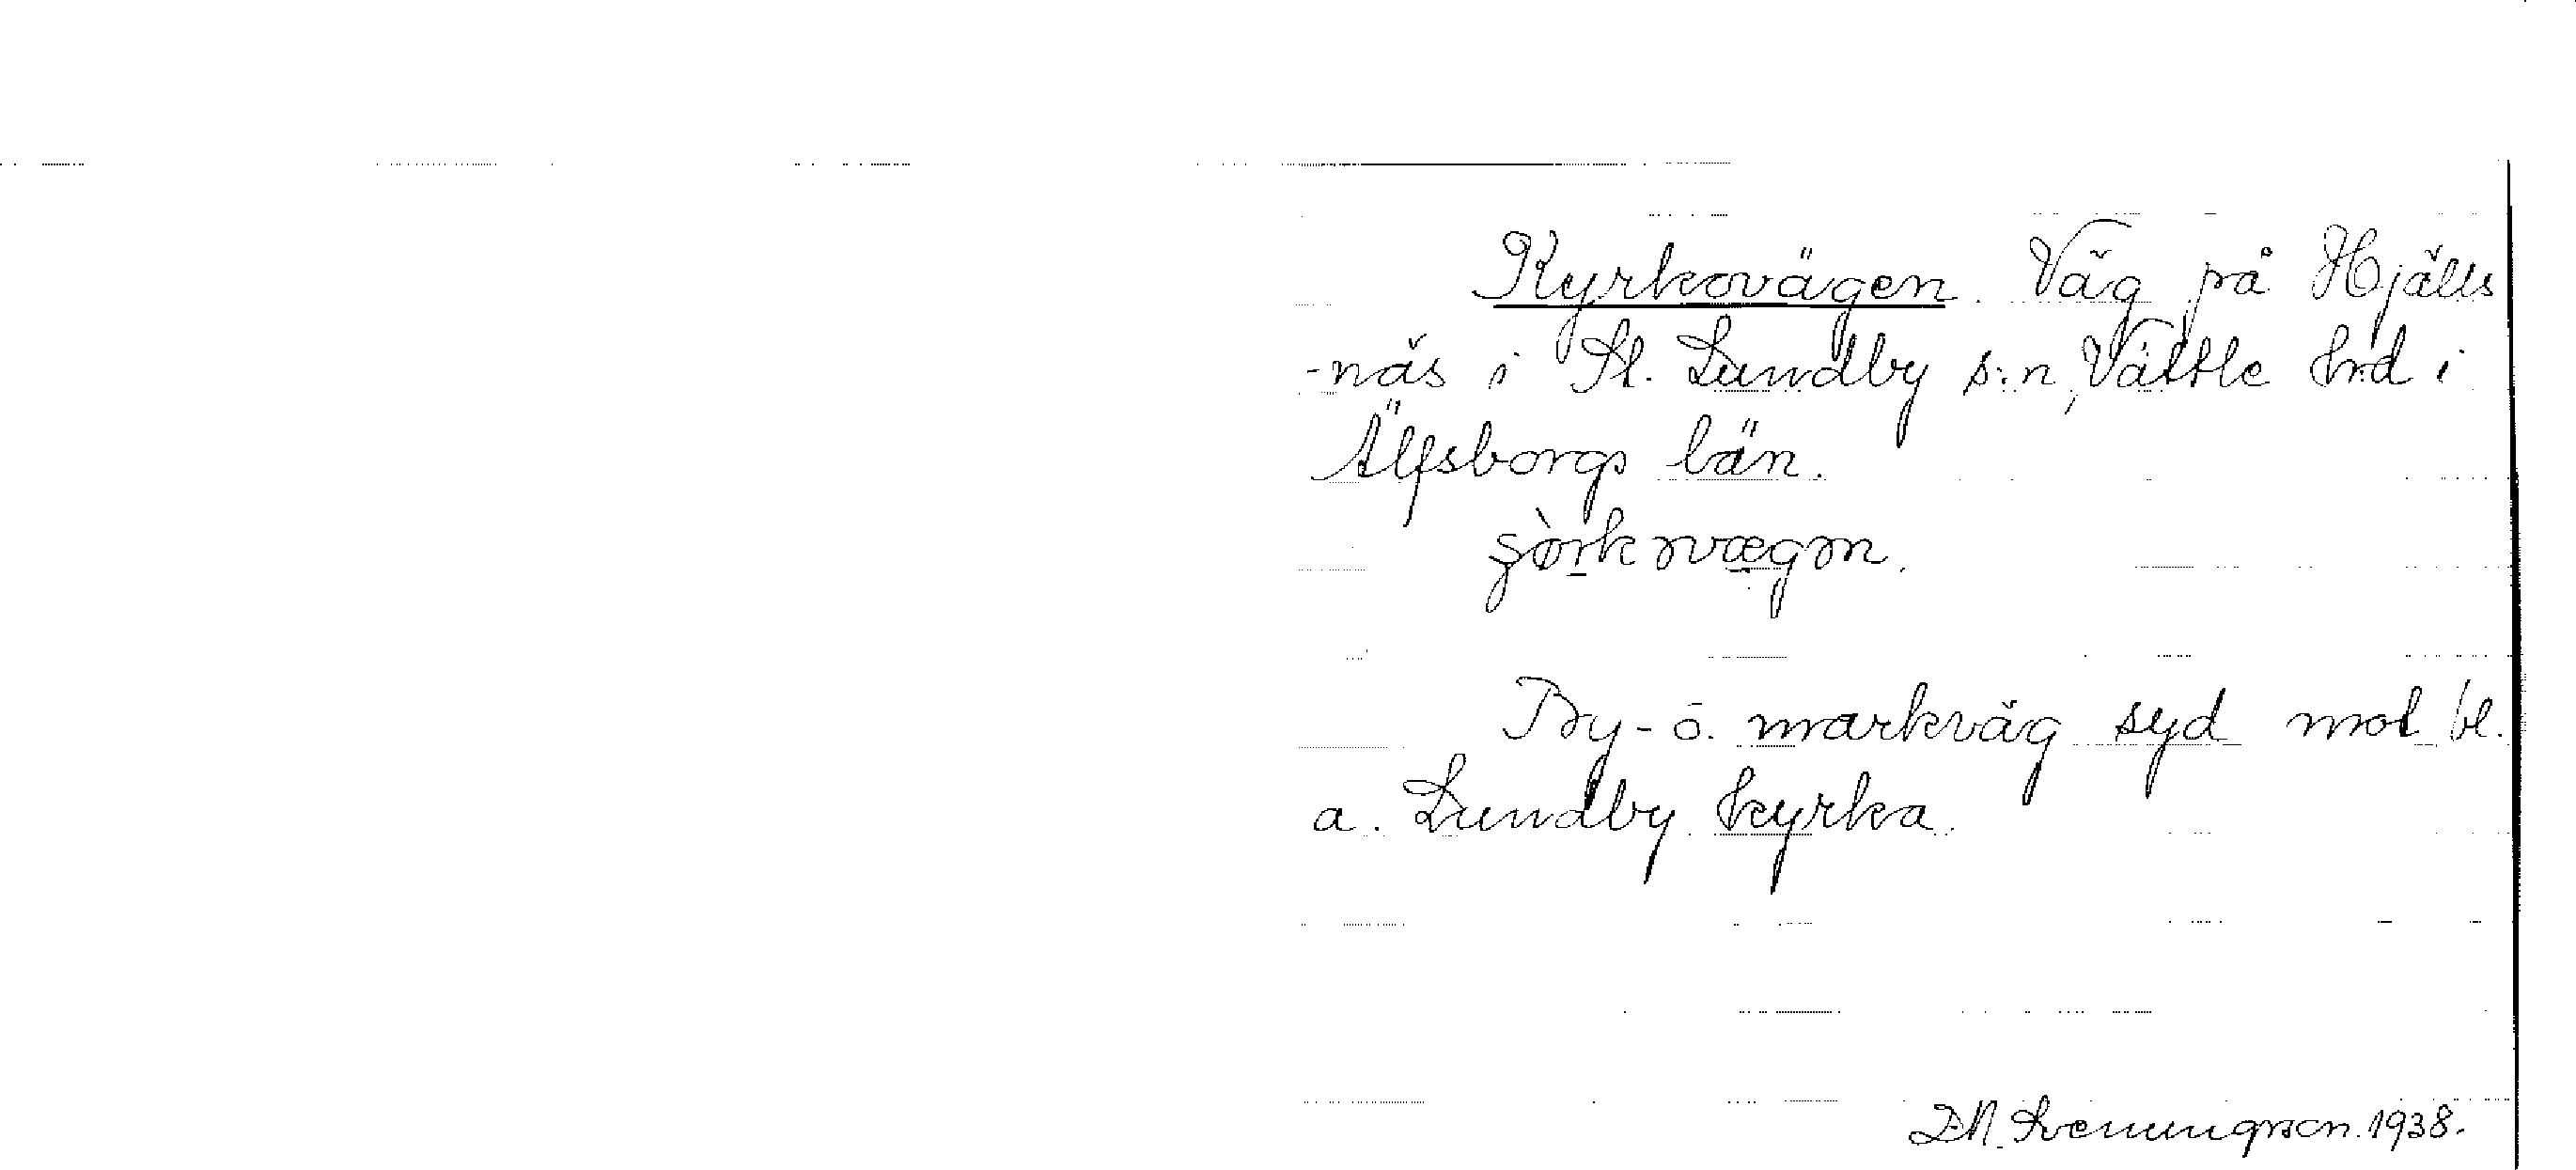 Kyrkovägen. Väg på Hjälls
-näs i St. Lundby s:n, Vättle hrd i
Älfsborgs län.
By- o. markväg syd mot bl.
a. Lundby kyrka.
1938.